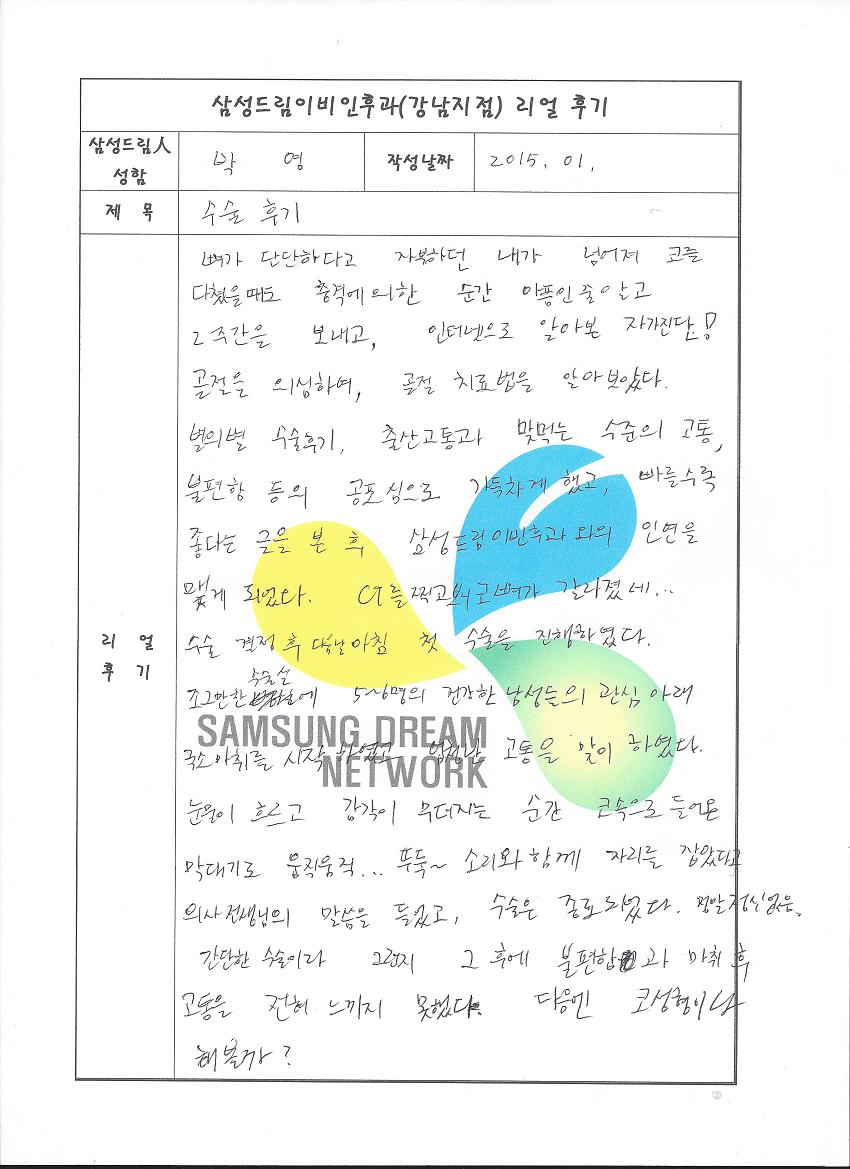 삼성드림이비인후과(강남지점) 리얼 후기
삼성드림人 성함 박 영 작성날짜 2015. 01.
제 목 수술 후기
리 얼 후 기
뼈가 단단하다고 자부하던 내가 넘어져 코를
다쳤을때도 충격에 의한 순간 아픔인줄 알고
2주간을 보내고, 인터넷으로 알아본 자가진단!
골절을 의심하여, 골절 치료법을 알아보았다.
별의별 수술후기, 출산고통과 맞먹는 수준의 고통,
불편함 등의 공포심으로 가득차게 했고, 빠를수록
좋다는 글을 본 후 삼성드림이비인후과와의 인연을
맺게 되었다. CT를 찍고보니 코뼈가 갈라졌네...
수술 결정 후 다음날 아침 첫 수술을 진행하였다.
조그만한 수술실에 5~6명의 건강한 남성들의 관심 아래
SAMSUNG DREAM
NETWORK
국소마취를 시작 하였고 엄청난 고통을 맞이 하였다.
눈물이 흐르고 감각이 무뎌지는 순간 코속으로 들어온
막대기로 움직움직... 뚜둑~ 소리와 함께 자리를 잡았다고
의사선생님의 말씀을 들었고, 수술은 종료되었다. 정말 정신없은.
간단한 수술이라 그런지 그 후에 불편함과 마취 후
고통을 전혀 느끼지 못했다. 다음엔 코성형이나
해볼까?